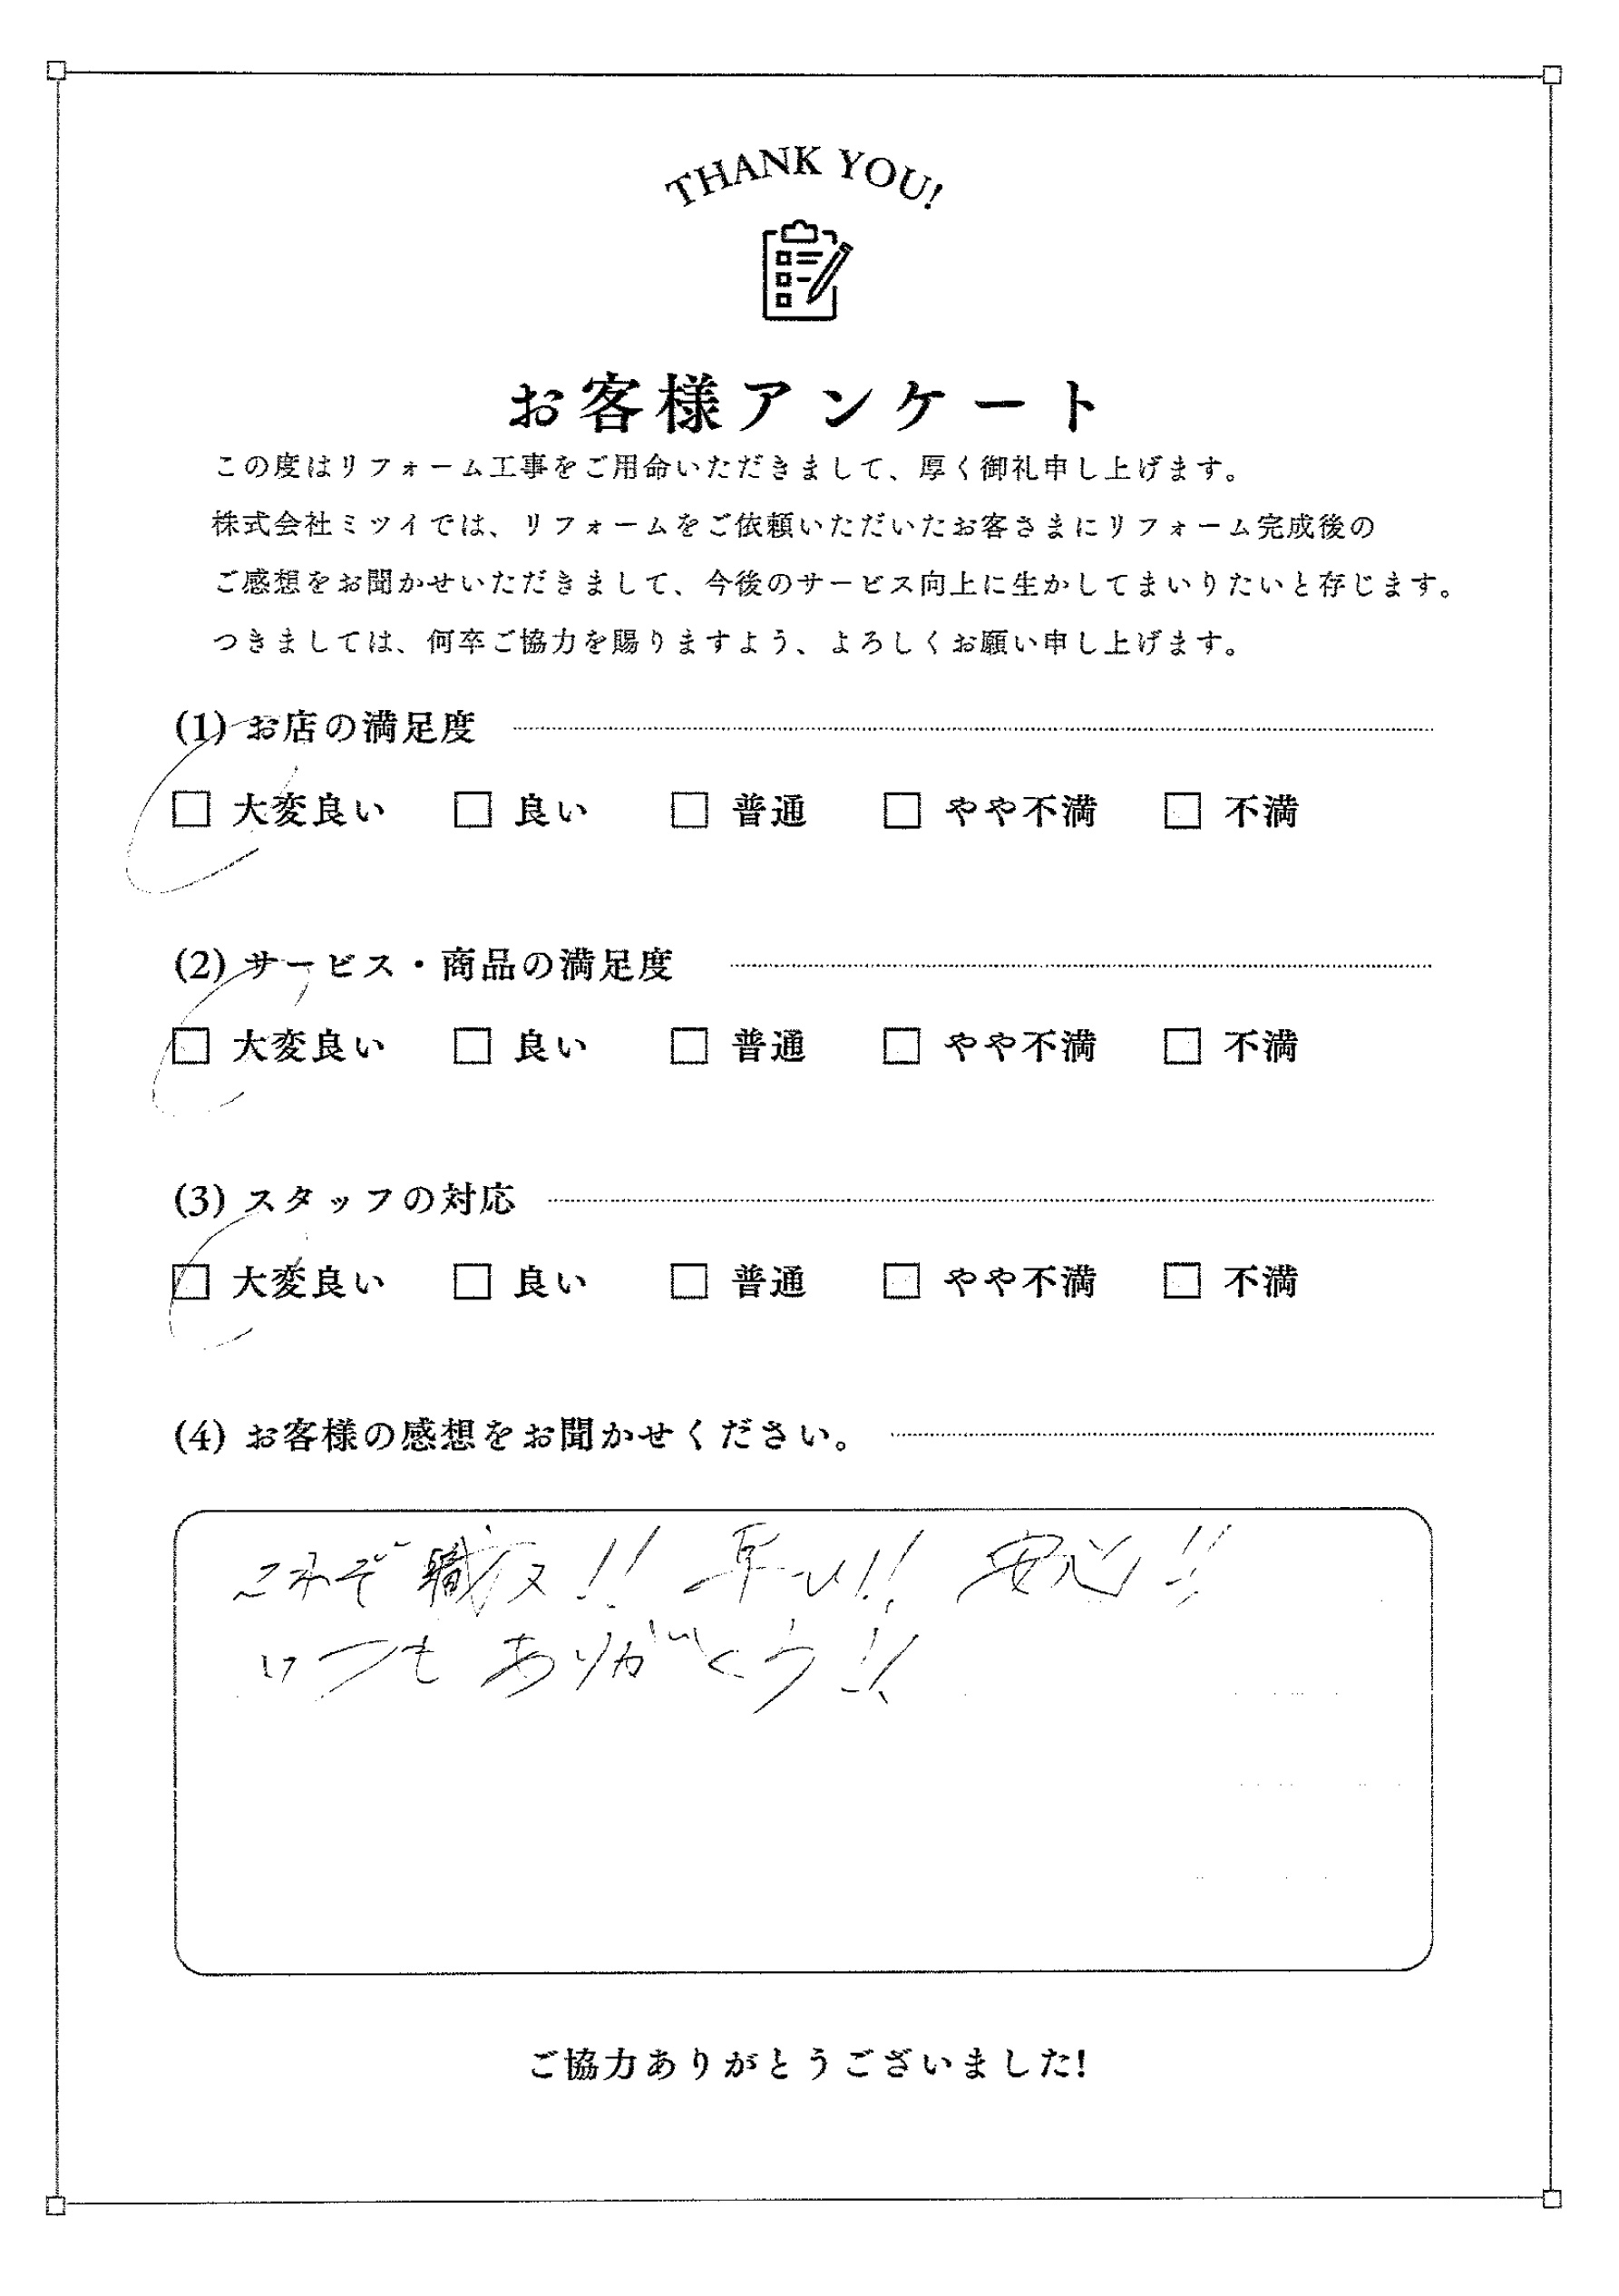 THANK YOU!
お客様アンケート
この度はリフォーム工事をご用命いただきまして、厚く御礼申し上げます。
株式会社ミツイでは、リフォームをご依頼いただいたお客さまにリフォーム完成後の
ご感想をお聞かせいただきまして、今後のサービス向上に生かしてまいりたいと存じます。
つきましては、何卒ご協力を賜りますよう、よろしくお願い申し上げます。
(1) お店の満足度
□ 大変良い □ 良い □ 普通 □ やや不満 □ 不満
(2) サービス・商品の満足度
□ 大変良い □ 良い □ 普通 □ やや不満 □ 不満
(3) スタッフの対応
□ 大変良い □ 良い □ 普通 □ やや不満 □ 不満
(4) お客様の感想をお聞かせください。
これぞ職人!! 早い!! 安心!!
いつもありがとう!!
ご協力ありがとうございました!